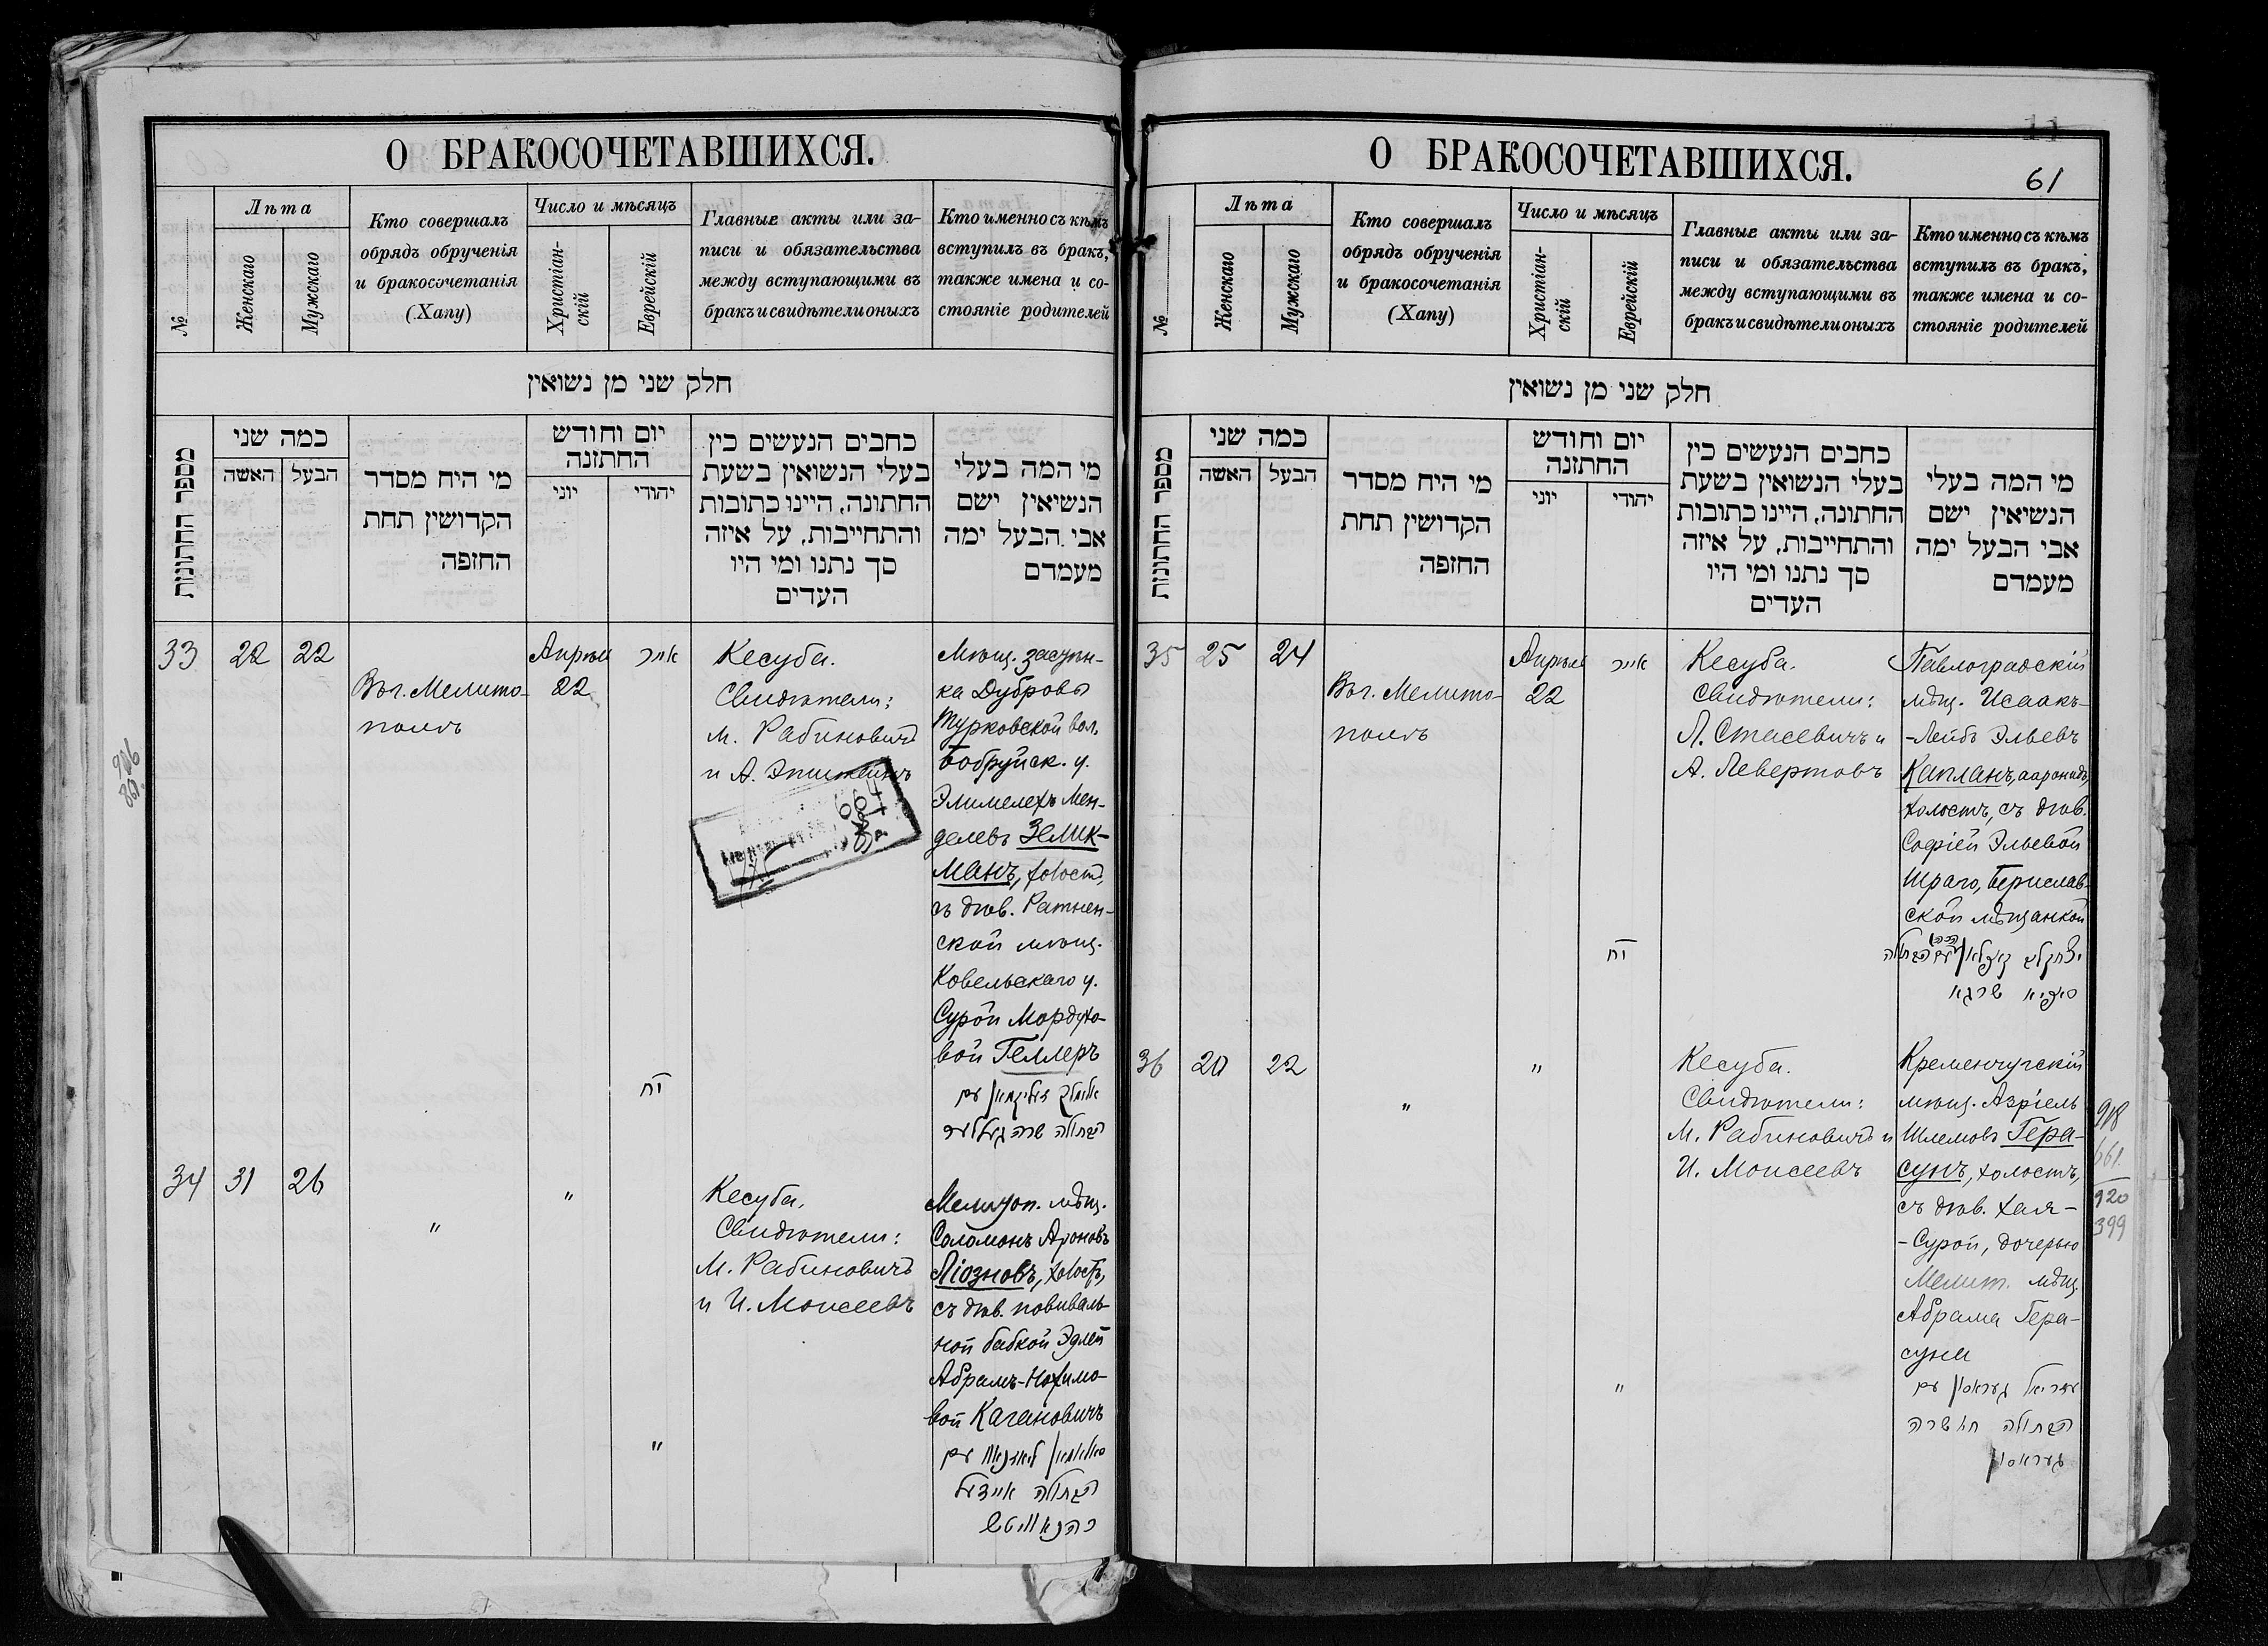 О БРАКОСОЧЕТАВШИХСЯ.
№
Лѣта
Женскаго
Мужскаго
Кто совершалъ
обрядъ обрученія
и бракосочетанія
(Хапу)
Число и мѣсяцъ
Христіан-
скій
Еврейскій
Главные акты или за-
писи и обязательства
между вступающими въ
бракъ и свидѣтели оныхъ
Кто именно съ кѣмъ
вступилъ въ бракъ,
также имена и со-
стояніе родителей
חלק שני מן נשואין
מספר החתונות
כמה שני
האשה
הבעל
מי היח מסדר
הקדושין תחת
החזפה
יום וחודש
החתזנה
יוני
יהודי
כחבים הנעשים כין
בעלי הנשואין בשעת
החתונה, היינו כתובות
והתחייבות, על איזה
סך נתנו ומי היו
העדים
מי המה בעלי
הנשיאין ישם
אבי הבעל ימה
מעמדם
33
22
22
Въ г. Мелито-
полѣ
Апрѣля
22
אייר
יח
Кесуба.
Свидѣтели:
М. Рабиновичъ
и А. Эпштейнъ
Мѣщ. застѣн-
ка Дубровы
Турковской вол.
Бобруйск. у.
Элимелехъ Мен-
делевъ Зелик-
манъ, холост.,
съ дѣв. Ратнен-
ской мѣщ.
Ковельскаго у.
Сурой Мордухо-
вой Геллеръ
אלימלך זעליקמאן עם
הבתולה שרה געללער
34
31
26
"
"
"
Кесуба.
Свидѣтели:
М. Рабиновичъ
и И. Моисеевъ
Мелитоп. мѣщ.
Соломонъ Ароновъ
Ліозновъ, холостъ,
съ дѣв. повиваль-
ной бабкой Эдлей
Абрамъ-Нохимо-
вой Кагановичъ
סאלאמאן ליאזנאוו עם
הבתולה איידעל
כהנאוויטש
906
861
О БРАКОСОЧЕТАВШИХСЯ.
11
61
№
Лѣта
Женскаго
Мужскаго
Кто совершалъ
обрядъ обрученія
и бракосочетанія
(Хапу)
Число и мѣсяцъ
Христіан-
скій
Еврейскій
Главные акты или за-
писи и обязательства
между вступающими въ
бракъ и свидѣтели оныхъ
Кто именно съ кѣмъ
вступилъ въ бракъ,
также имена и со-
стояніе родителей
חלק שני מן נשואין
מספר החתונות
כמה שני
האשה
הבעל
מי היח מסדר
הקדושין תחת
החזפה
יום וחודש
החתזנה
יוני
יהודי
כחבים הנעשים כין
בעלי הנשואין בשעת
החתונה, היינו כתובות
והתחייבות, על איזה
סך נתנו ומי היו
העדים
מי המה בעלי
הנשיאין ישם
אבי הבעל ימה
מעמדם
35
25
24
Въ г. Мелито-
полѣ
Апрѣля
22
אייר
יח
Кесуба.
Свидѣтели:
Л. Стасевичъ и
А. Левертовъ
Павлоградскій
мѣщ. Исаакъ-
-Лейбъ Эльевъ
Капланъ, ааронидъ,
холостъ, съ дѣв.
Софіей Эльевой
Шраго, Берислав-
ской мѣщанкой
יצחק לייב קאפלאן (הכהן) עם הבתולה
סאפיא שרגא
36
20
22
"
"
"
Кесуба.
Свидѣтели:
М. Рабиновичъ и
И. Моисеевъ
Кременчугскій
мѣщ. Азріель
Шлемовъ Гера-
сунъ, холостъ,
съ дѣв. Хая-
-Сурой, дочерью
Мелит. мѣщ.
Абрама Гера-
суна
עזריאל געראסון עם
הבתולה חי שרה
געראסון
918
661
920
399